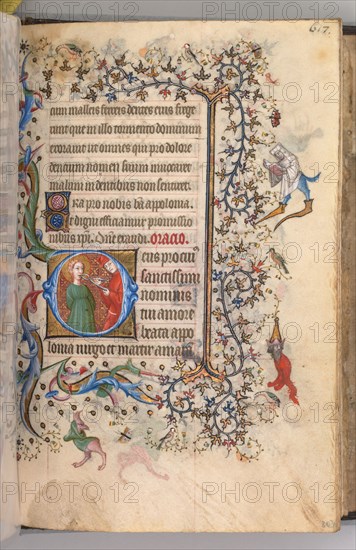 617.
eum malleis ferreis dentes eius frege
runt que in illo tormento dominum
exorauit ut omnes qui pro dolore
dencium nomen suum inuocaret
malum in dentibus non sentiret.
Ora pro nobis bā apolonia.
Ut digni efficiamur promissio
nibus xp̄i. Dn̄e exaudi. Oracio.
eus pro cuiꝰ
sanctissimi
nominis
tui amore
beata apo
lonia uirgo et martir amaras
PHOTO12